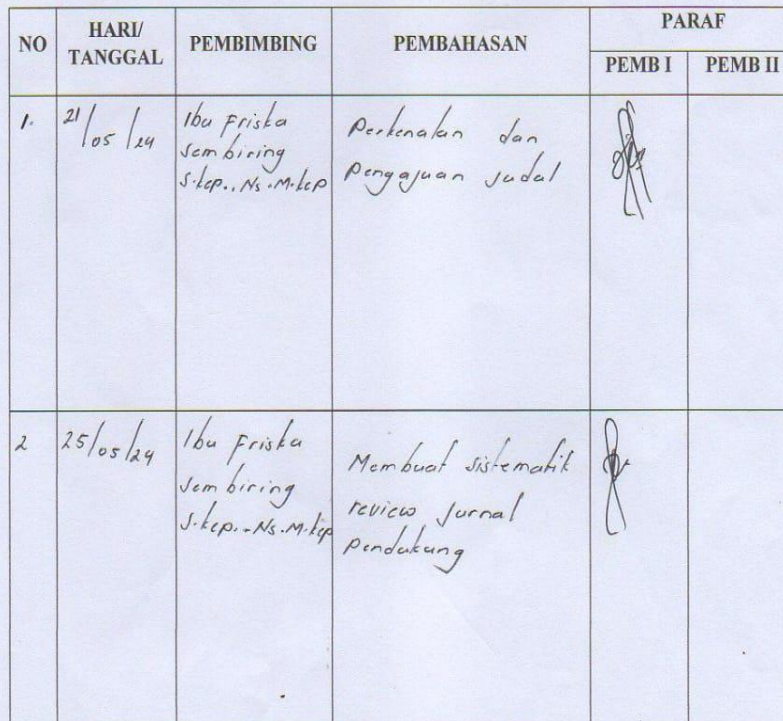 NO
HARI/
TANGGAL
PEMBIMBING
PEMBAHASAN
PARAF
PEMB I
PEMB II
1.
21/05/24
Ibu Friska
Sembiring
S.kep., Ns.M.kep
Perkenalan dan
Pengajuan Judul
2
25/05/24
Ibu Friska
Sembiring
S.kep., Ns.M.kep
Membuat sistematik
review Jurnal
Pendukung